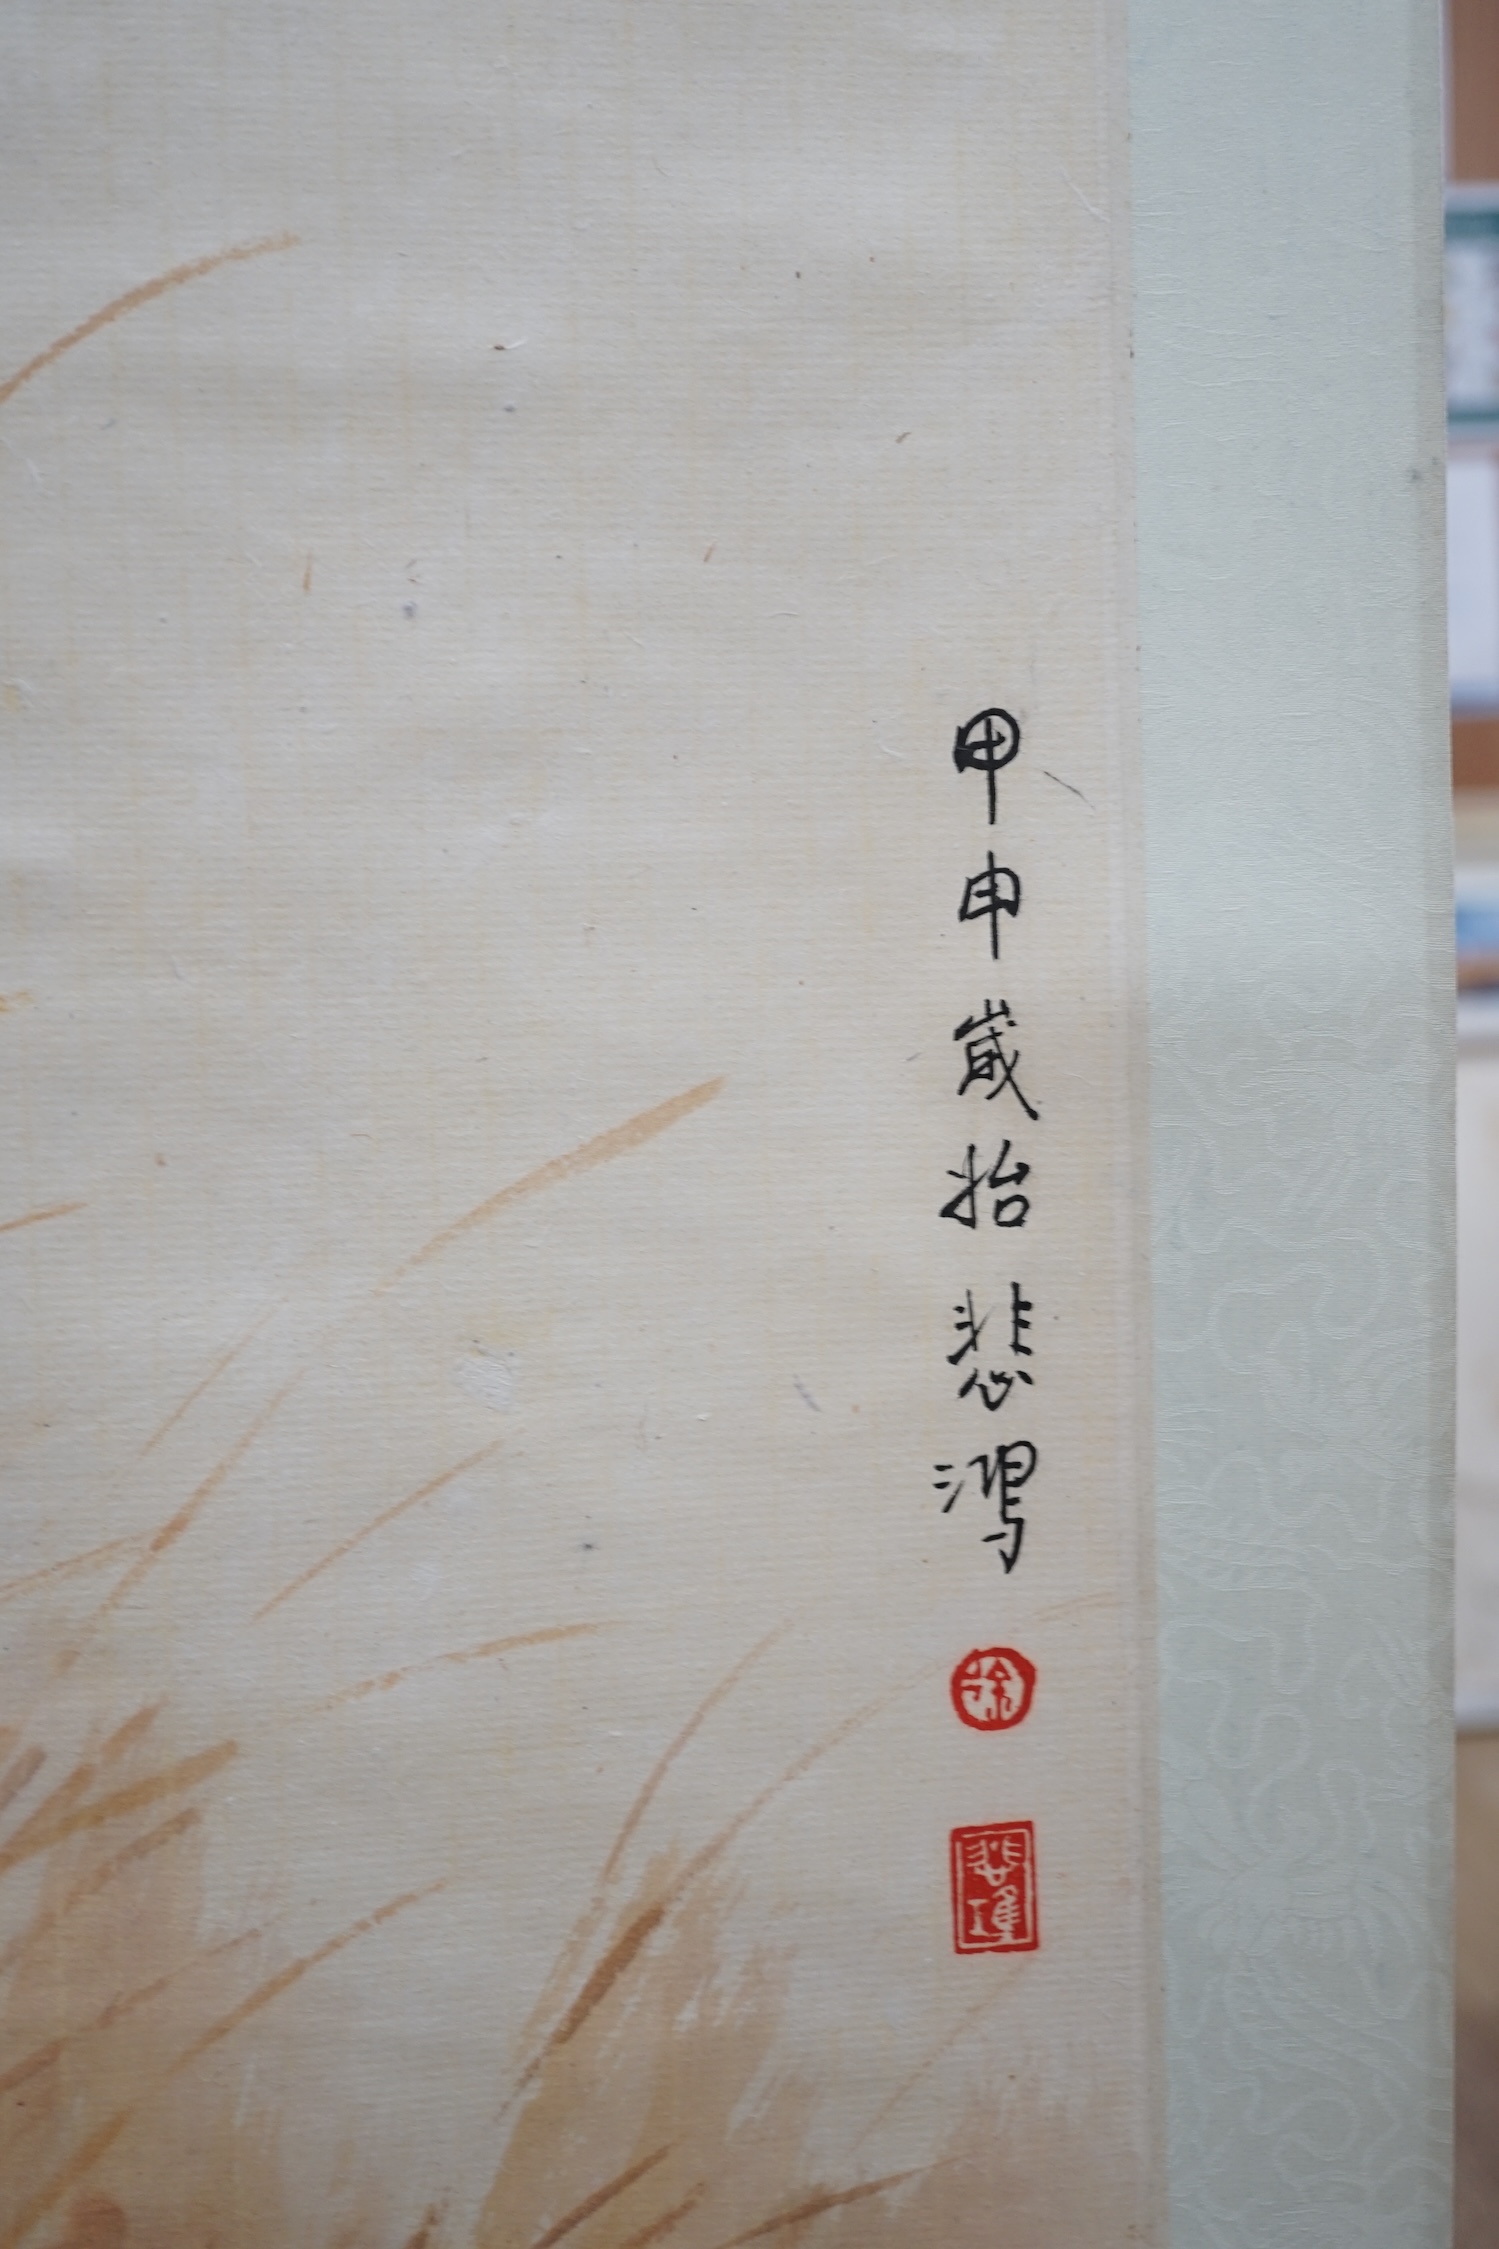 甲申歲始悲鴻
徐
悲鴻